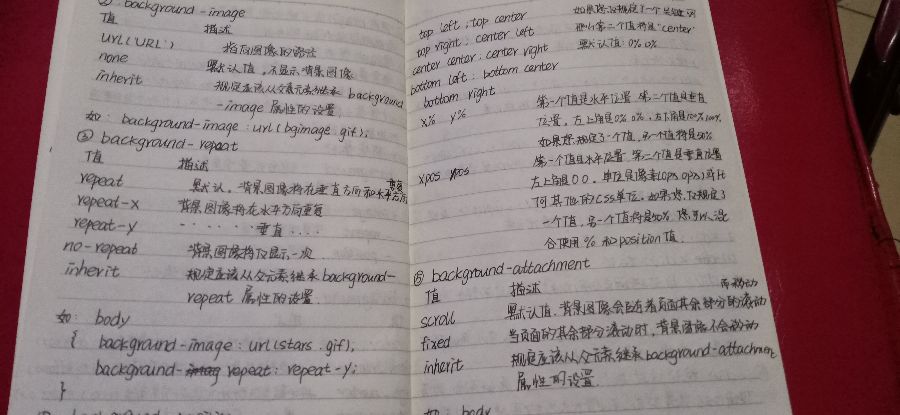 ② background-image
值 描述
URL('URL') 指向图像的路径
none 默认值,不显示背景图像
inherit 规定应该从父元素继承 background
-image 属性的设置
如: background-image:url(bgimage.gif);
③ background-repeat
值 描述
repeat 默认,背景图像将在垂直方向和水平方向重复
repeat-x 背景图像将在水平方向重复
repeat-y ····· 垂直····
no-repeat 背景图像将仅显示一次
inherit 规定应该从父元素继承 background-
repeat 属性的设置
如: body
{ background-image:url(stars.gif);
background-repeat:repeat-y;
}
top left;top center 如果您仅规定了一个关键词
top right;center left 那么第二个值将是"center"
center center;center right 默认值:0% 0%
bottom left;bottom center
bottom right
x% y% 第一个值是水平位置,第二个值是垂直
位置,左上角是0% 0%,右下角是100% 100%
如果您规定了一个值,另一个值将是50%
xpos ypos 第一个值是水平位置,第二个值是垂直位置
左上角是00,单位是像素(0px 0px)或任
何其他的CSS单位,如果您仅规定了
一个值,另一个值将是50% 您可以混
合使用%和position值
⑤ background-attachment
值 描述
scroll 默认值,背景图像会随着页面其余部分的滚动而移动
fixed 当页面的其余部分滚动时,背景图像不会移动
inherit 规定应该从父元素继承background-attachment
属性的设置
如: body